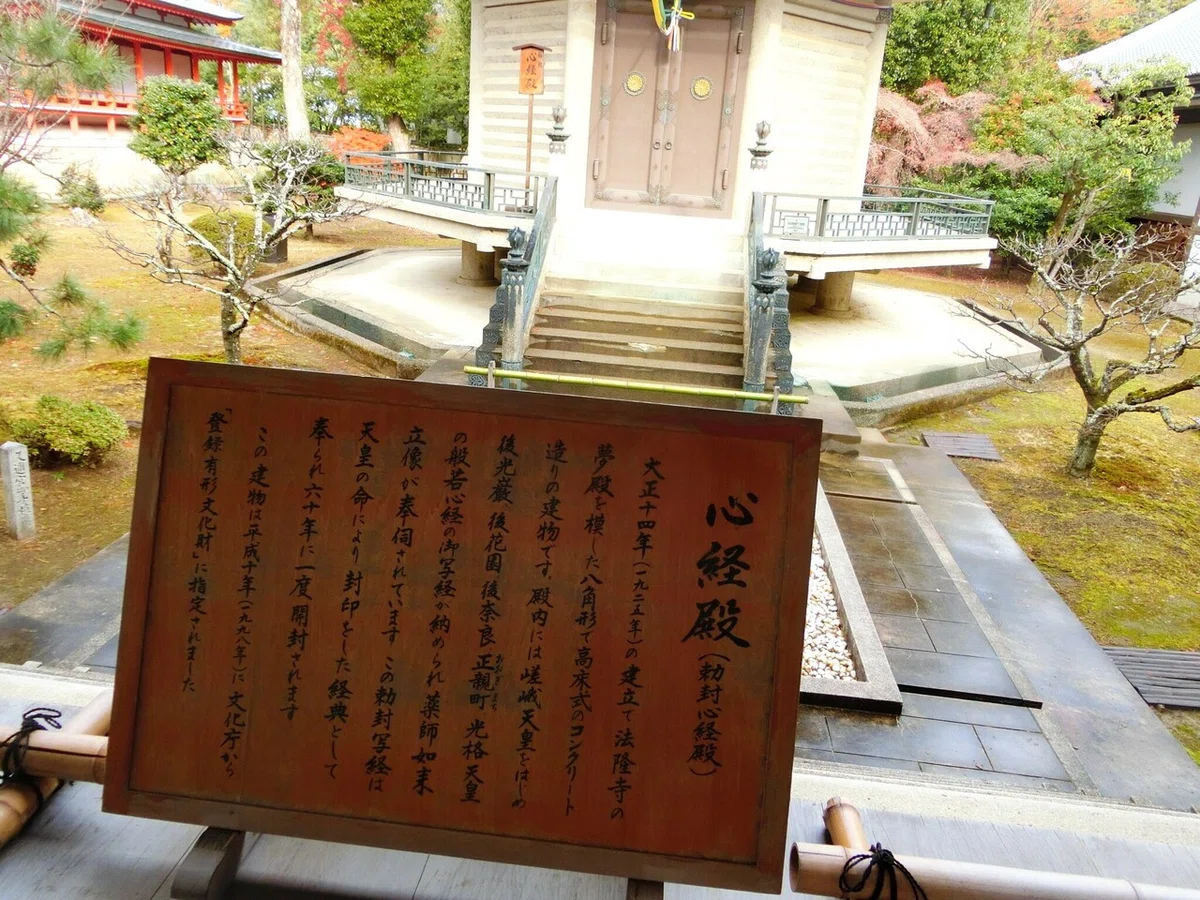 心経殿
心経殿(勅封心経殿)
大正十四年(一九二五年)の建立で法隆寺の
夢殿を模した八角形で高床式のコンクリート
造りの建物です。殿内には嵯峨天皇をはじめ
後光厳 後花園 後奈良 正親町 光格天皇
の般若心経の御写経が納められ 薬師如来
立像が奉伺されています この勅封写経は
天皇の命により封印をした経典として
奉られ六十年に一度開封されます
この建物は平成十年(一九九八年)に文化庁から
「登録有形文化財」に指定されました